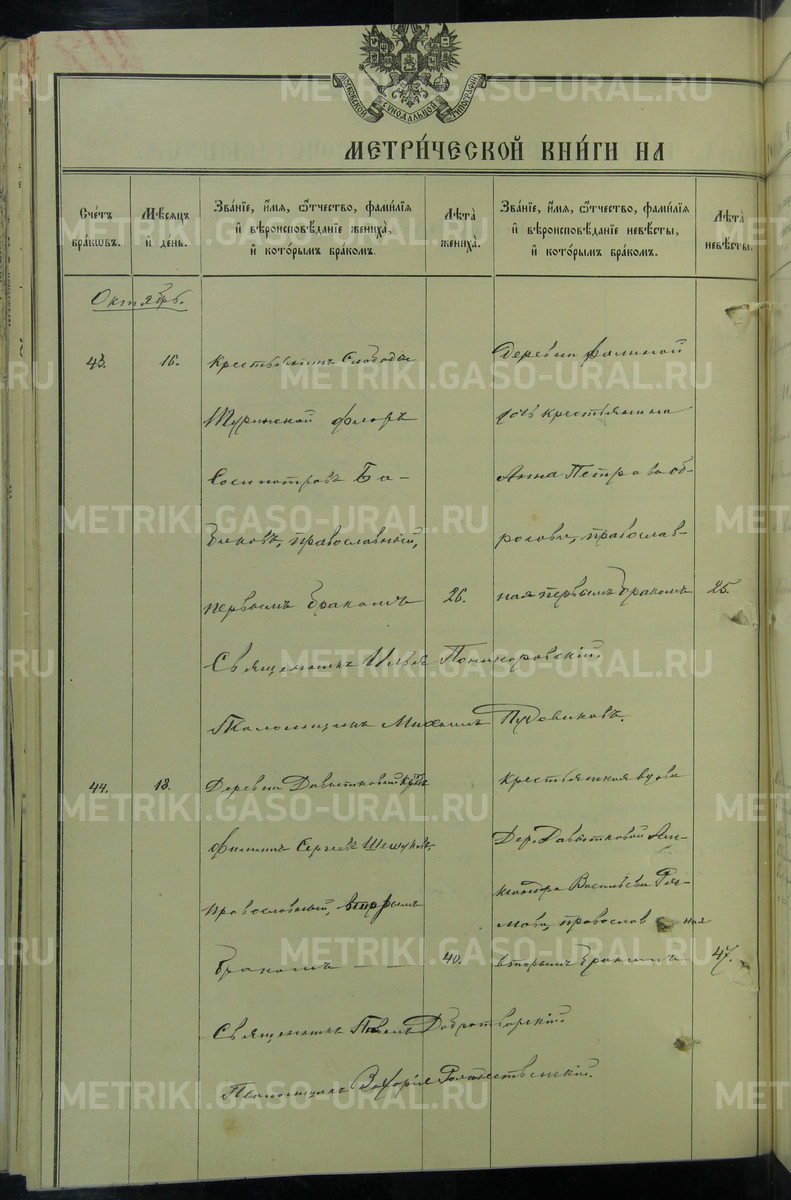 МОСКОВСКОЙ СУНОДАЛЬНОЙ ТИПОГРАФІИ
МЕТРИ́ЧЕСКОЙ КНИ́ГИ НА
Сче́тъ бра́кѡвъ.
Мѣсяцъ и҆ де́нь.
Зва́нїе, и҆́мя, ѻ҆́тчество, фами́лїя и҆ вѣроисповѣ́данїе жениха̀, и҆ кото́рымъ бра́комъ.
Лѣта̀ жениха̀.
Зва́нїе, и҆́мя, ѻ҆́тчество, фами́лїя и҆ вѣроисповѣ́данїе невѣ́сты, и҆ кото́рымъ бра́комъ.
Лѣта̀ невѣ́сты.
Октябрь.
43.
16.
Крестьянинъ Слободы
Туринской Флоръ
Сосипатровъ Ба-
биковъ, православный,
первымъ бракомъ
26.
Деревни Фалиной
дочь крестьянина
Анна Петрова
православ-
ная первымъ бракомъ
25.
Священникъ Илья Пономоровскій
Псаломщикъ Михаилъ Пудовиковъ.
44.
18.
Деревни Давыдковой
Филиппъ Сергѣевъ Шешуковъ,
православный, вторымъ
бракомъ
40.
Крестьянская вдова
Дер. Давыдковой
Васильева
православ ная
вторымъ бракомъ
47.
Священникъ Павелъ Добротворскій
Псаломщикъ Захарія Рождественскій.
METRIKI.GASO-URAL.RU